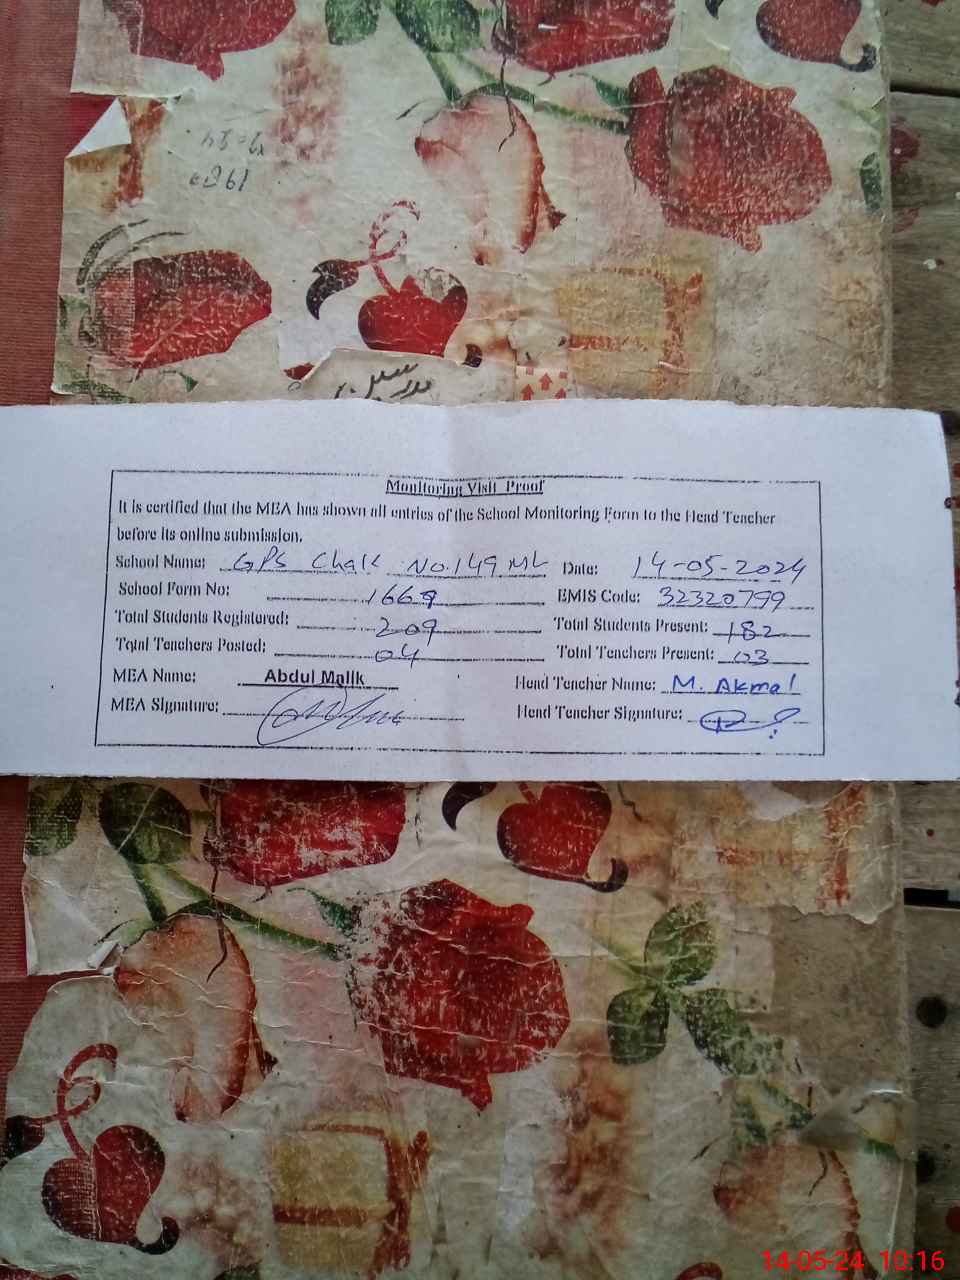 Monitoring Visit Proof
It is certified that the MEA has shown all entries of the School Monitoring Form to the Head Teacher
before its online submission.
School Name: GPS Chak No.149 ML Date: 14-05-2024
School Form No: 1669 EMIS Code: 32320799
Total Students Registered: 209 Total Students Present: 182
Total Teachers Posted: 04 Total Teachers Present: 03
MEA Name: Abdul Malik Head Teacher Name: M. Akmal
MEA Signature: Head Teacher Signature:
14-05-24 10:16